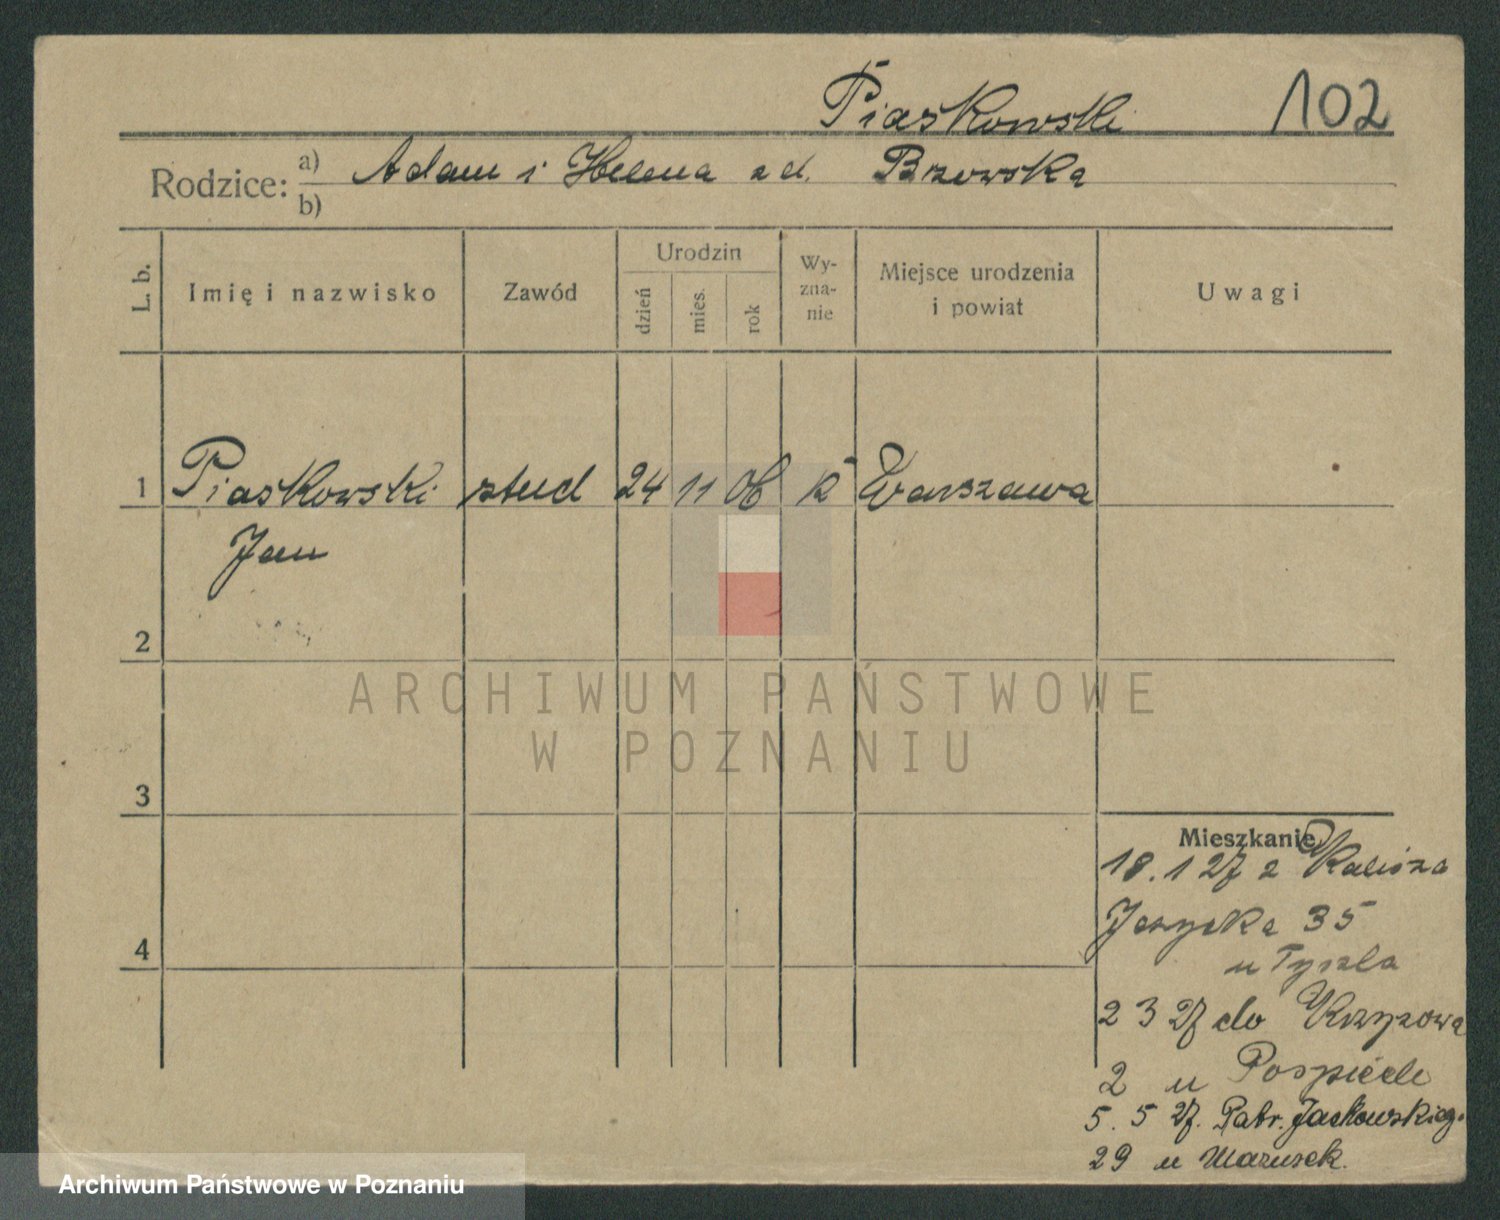 Piaskowski 102
Rodzice: a) Adam i Helena z d. Brzowska
b)
L. b. Imię i nazwisko Zawód Urodzin dzień mies. rok Wy-zna-nie Miejsce urodzenia i powiat Uwagi
1 Piaskowski stud 24 11 06 k Warszawa
Jan
2
3
4
Mieszkanie
18. 1 27 z Kalisza
35
u Tyszla
2 3 27 do Krzyzowa
2 u
5. 5 27. Patr. Jackowskieg.
29 u Marusek.
ARCHIWUM PAŃSTWOWE
W POZNANIU
Archiwum Państwowe w Poznaniu